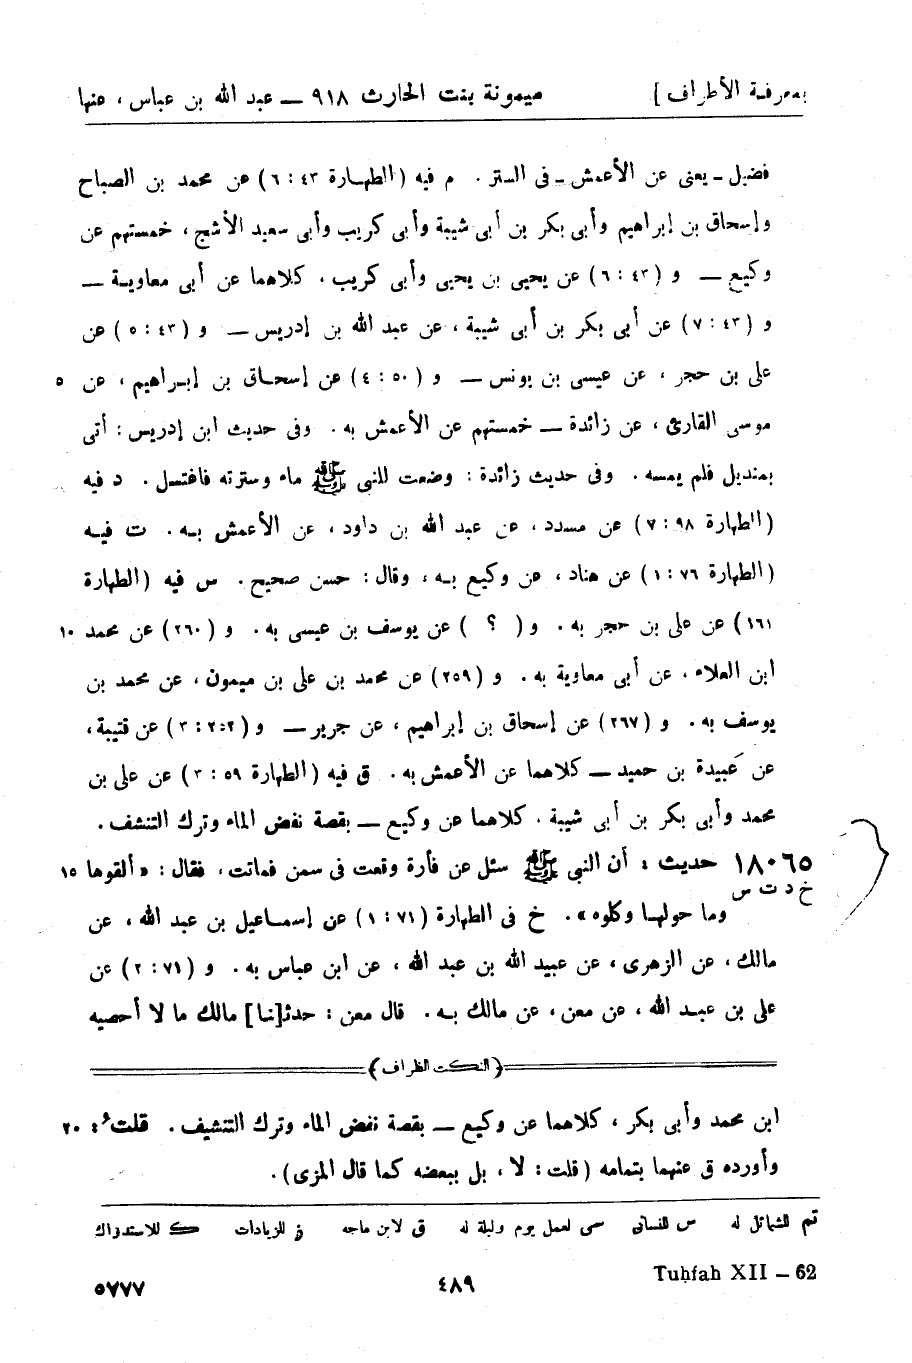 بمعرفة الأطراف ] ميمونة بنت الحارث ٩١٨ — عبد الله بن عباس ، عنها
فضيل ـ يعنى عن الأعمش ـ فى الستر . م فيه (الطهارة ٤٣ : ٦) عن محمد بن الصباح
وإسحاق بن إبراهيم وأبى بكر بن أبى شيبة وأبى كريب وأبى سعيد الأشج ، خمستهم عن
وكيع — و (٤٣ : ٦) عن يحيى بن يحيى وأبى كريب ، كلاهما عن أبى معاوية —
و (٤٣ : ٧) عن أبى بكر بن أبى شيبة ، عن عبد الله بن إدريس — و (٤٣ : ٥) عن
على بن حجر ، عن عيسى بن يونس — و (٥٠ : ٤) عن إسحاق بن إبراهيم ، عن ٥
موسى القارئ ، عن زائدة — خمستهم عن الأعمش به . وفى حديث ابن إدريس : أتى
بمنديل فلم يمسه . وفى حديث زائدة : وضعت للنبى ﷺ ماء وسترته فاغتسل . د فيه
(الطهارة ٩٨ : ٧) عن مسدد ، عن عبد الله بن داود ، عن الأعمش به . ت فيه
(الطهارة ٧٦ : ١) عن هناد ، عن وكيع به ، وقال : حسن صحيح . س فيه (الطهارة
١٦١) عن على بن حجر به . و ( ؟ ) عن يوسف بن عيسى به . و (٢٦٠) عن محمد ١٠
ابن العلاء ، عن أبى معاوية به . و (٢٥٩) عن محمد بن على بن ميمون ، عن محمد بن
يوسف به . و (٢٦٧) عن إسحاق بن إبراهيم ، عن جرير — و (٢٥٢ : ٣) عن قتيبة ،
عن عَبيدة بن حميد — كلاهما عن الأعمش به . ق فيه (الطهارة ٥٩ : ٣) عن على بن
محمد وأبى بكر بن أبى شيبة ، كلاهما عن وكيع — بقصة نفض الماء وترك التنشف .
١٨٠٦٥ حديث : أن النبى ﷺ سئل عن فأرة وقعت فى سمن فماتت ، فقال : «ألقوها ١٥
خ د ت س وما حولها وكلوه» . خ فى الطهارة (٧١ : ١) عن إسماعيل بن عبد الله ، عن
مالك ، عن الزهرى ، عن عبيد الله بن عبد الله ، عن ابن عباس به . و (٧١ : ٢) عن
على بن عبد الله ، عن معن ، عن مالك به . قال معن : حدث[نا] مالك ما لا أحصيه
(النكت الظراف)
ابن محمد وأبى بكر ، كلاهما عن وكيع — بقصة نفض الماء وترك التنشيف . قلت : ٢٠
وأورده ق عنهما بتمامه (قلت : لا ، بل ببعضه كما قال المزى) .
تم للشمائل له س للنسائى سى لعمل يوم وليلة له ق لابن ماجه ز للزيادات ك للاستدراك
Tuḥfah XII – 62 ٤٨٩ ٥٧٧٧